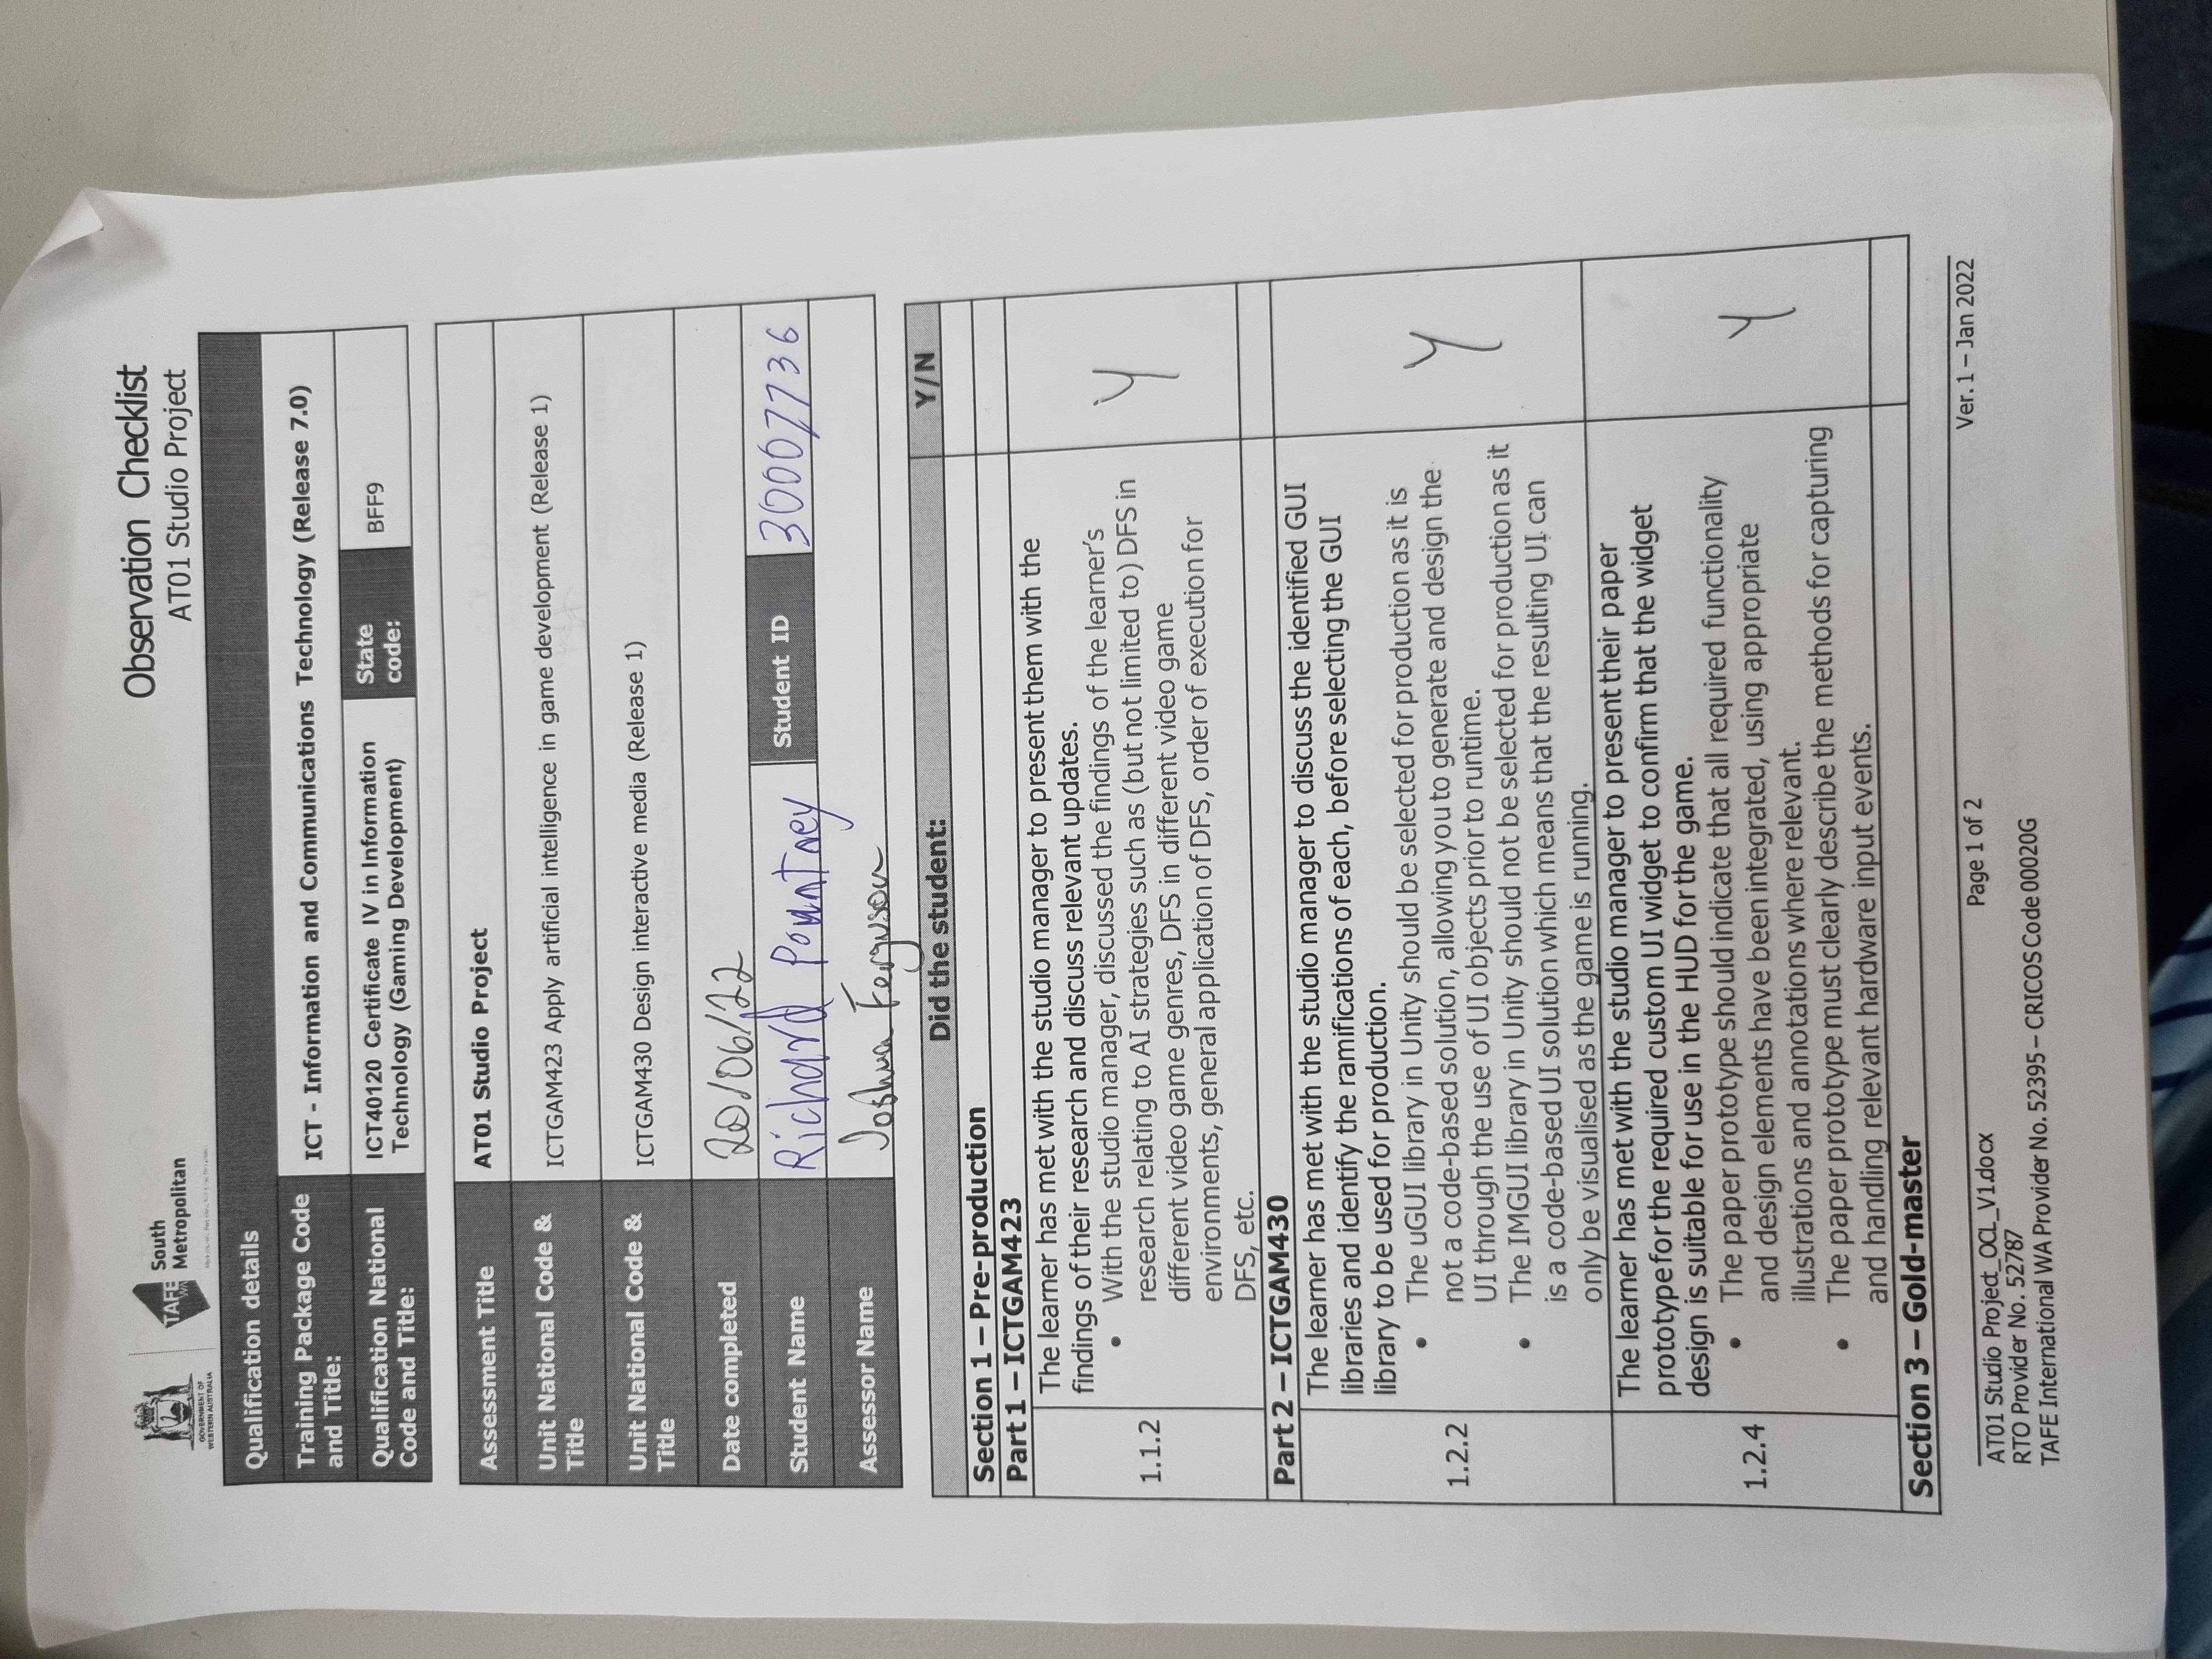 Observation Checklist
AT01 Studio Project
GOVERNMENT OF
WESTERN AUSTRALIA
TAFE
WA
South
Metropolitan
Qualification details
Training Package Code
and Title:
ICT - Information and Communications Technology (Release 7.0)
Qualification National
Code and Title:
ICT40120 Certificate IV in Information
Technology (Gaming Development)
State
code:
BFF9
Assessment Title
AT01 Studio Project
Unit National Code &
Title
ICTGAM423 Apply artificial intelligence in game development (Release 1)
Unit National Code &
Title
ICTGAM430 Design interactive media (Release 1)
Date completed
20/06/22
Student Name
Richard Pountney
Student ID
30007736
Assessor Name
Joshua Ferguson
Did the student:
Y/N
Section 1 – Pre-production
Part 1 – ICTGAM423
1.1.2
The learner has met with the studio manager to present them with the
findings of their research and discuss relevant updates.
• With the studio manager, discussed the findings of the learner's
research relating to AI strategies such as (but not limited to) DFS in
different video game genres, DFS in different video game
environments, general application of DFS, order of execution for
DFS, etc.
Y
Part 2 – ICTGAM430
1.2.2
The learner has met with the studio manager to discuss the identified GUI
libraries and identify the ramifications of each, before selecting the GUI
library to be used for production.
• The uGUI library in Unity should be selected for production as it is
not a code-based solution, allowing you to generate and design the
UI through the use of UI objects prior to runtime.
• The IMGUI library in Unity should not be selected for production as it
is a code-based UI solution which means that the resulting UI can
only be visualised as the game is running.
Y
1.2.4
The learner has met with the studio manager to present their paper
prototype for the required custom UI widget to confirm that the widget
design is suitable for use in the HUD for the game.
• The paper prototype should indicate that all required functionality
and design elements have been integrated, using appropriate
illustrations and annotations where relevant.
• The paper prototype must clearly describe the methods for capturing
and handling relevant hardware input events.
Y
Section 3 – Gold-master
AT01 Studio Project_OCL_V1.docx
Page 1 of 2
Ver. 1 – Jan 2022
RTO Provider No. 52787
TAFE International WA Provider No. 52395 – CRICOS Code 00020G